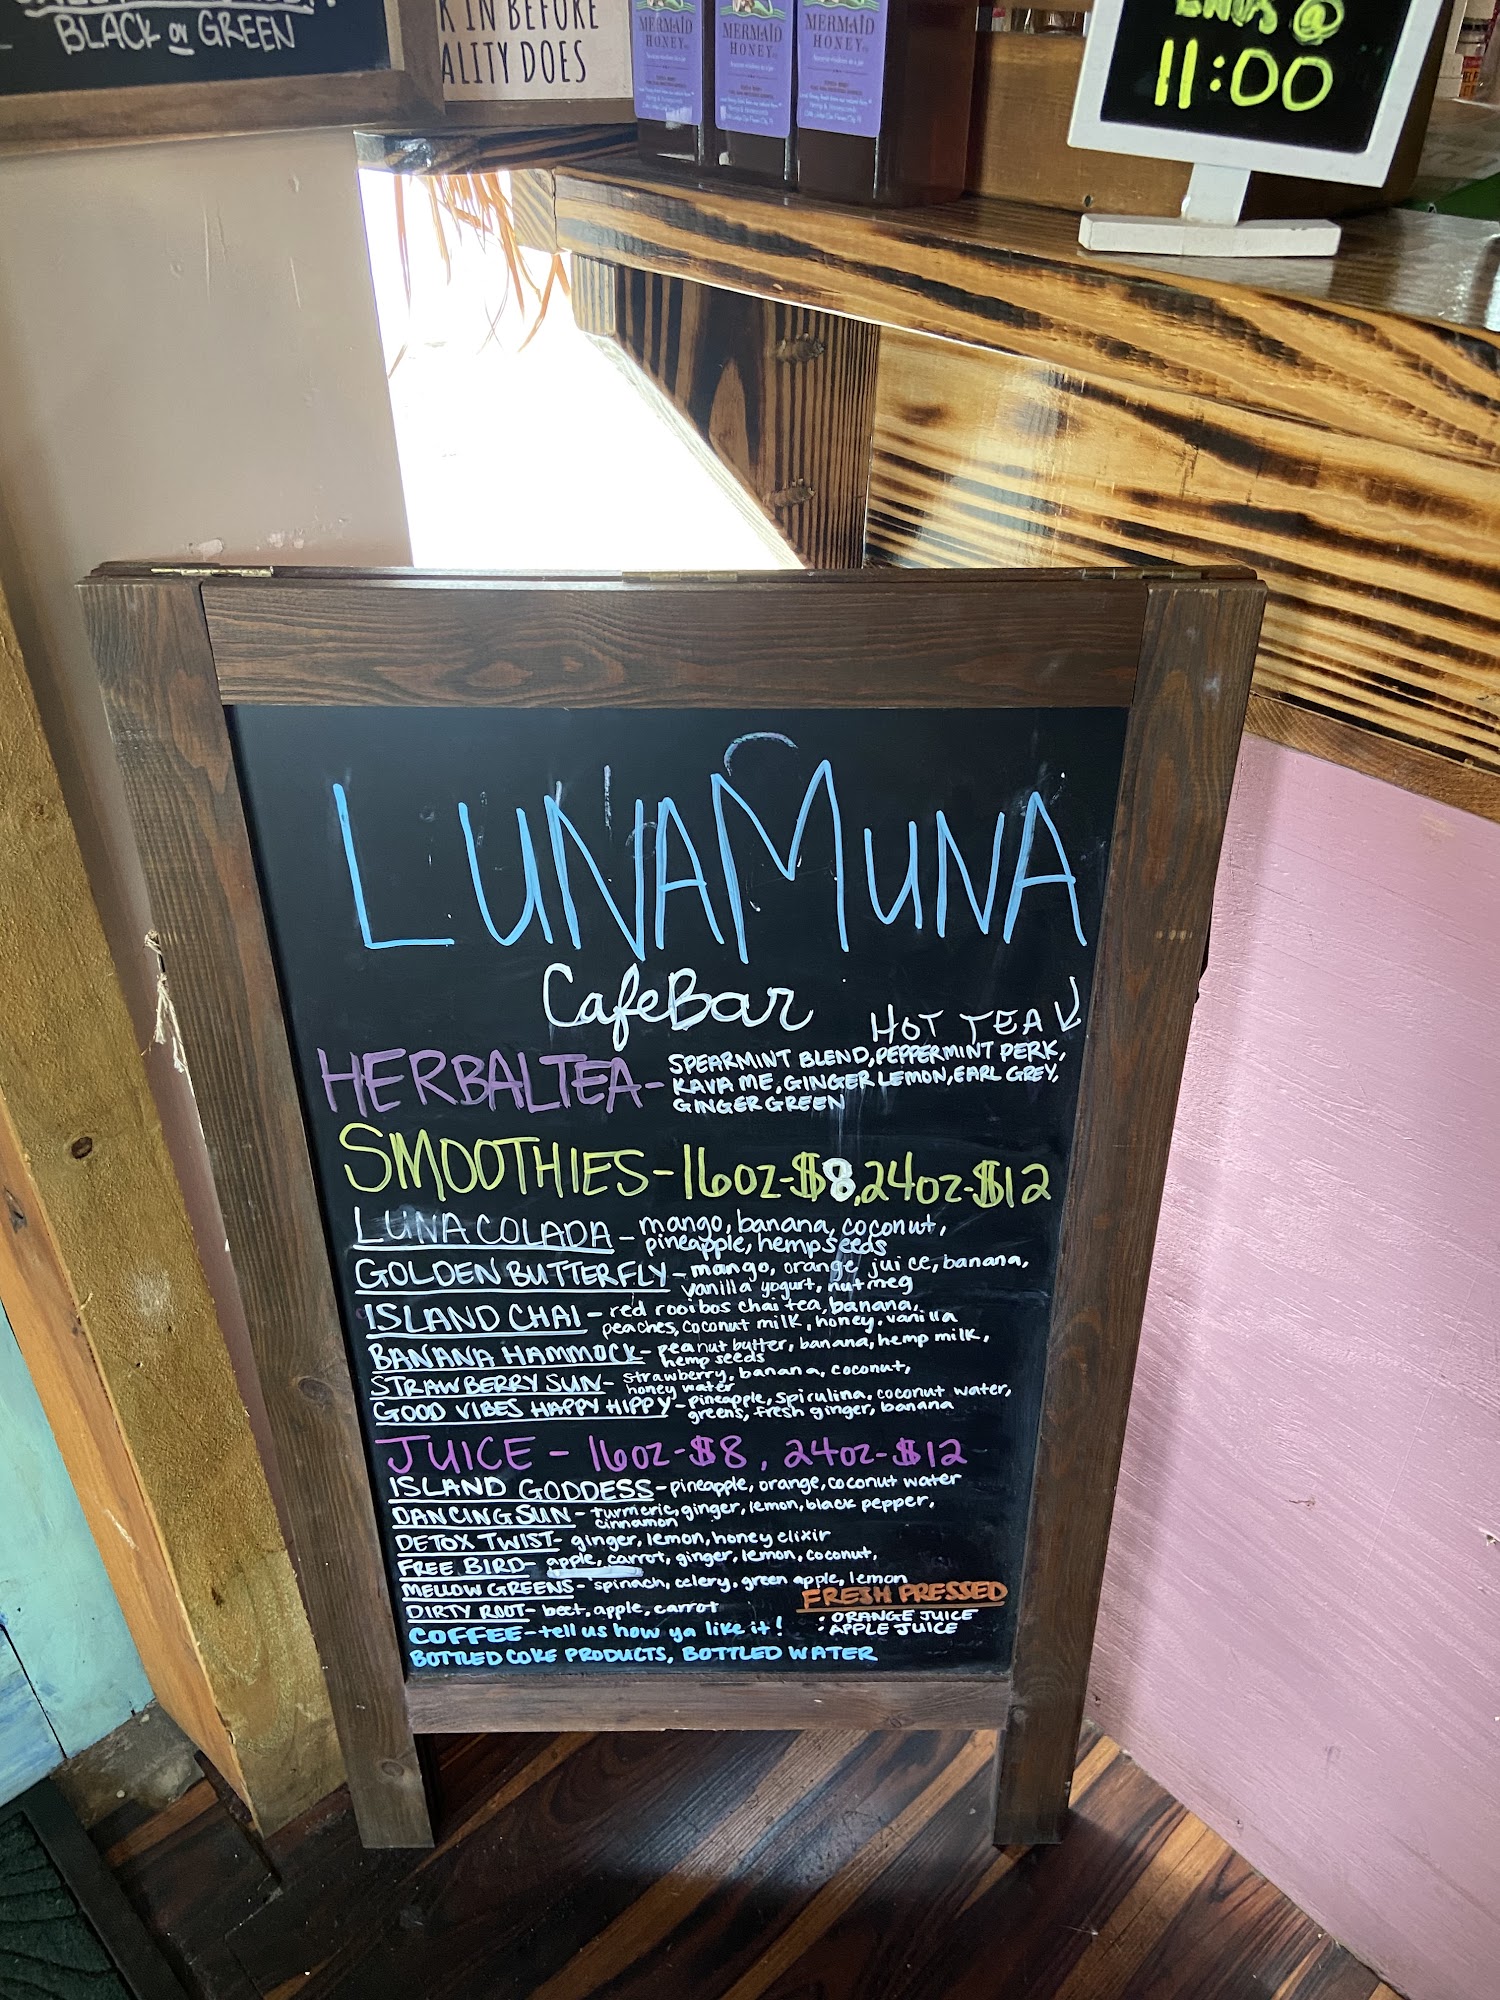 BLACK or GREEN
K IN BEFORE
ALITY DOES
MERMAID
HONEY
MERMAID
HONEY
MERMAID
HONEY
ENDS @
11:00
LUNAMUNA
CafeBar
HOT TEA
HERBAL TEA - SPEARMINT BLEND, PEPPERMINT PERK,
KAVA ME, GINGER LEMON, EARL GREY,
GINGER GREEN
SMOOTHIES - 16oz - $8, 24oz - $12
LUNA COLADA - mango, banana, coconut,
pineapple, hemp seeds
GOLDEN BUTTERFLY - mango, orange juice, banana,
vanilla yogurt, nutmeg
ISLAND CHAI - red rooibos chai tea, banana,
peaches, coconut milk, honey, vanilla
BANANA HAMMOCK - peanut butter, banana, hemp milk,
hemp seeds
STRAWBERRY SUN - strawberry, banana, coconut,
honey water
GOOD VIBES HAPPY HIPPY - pineapple, spiculina, coconut water,
greens, fresh ginger, banana
JUICE - 16oz - $8, 24oz - $12
ISLAND GODDESS - pineapple, orange, coconut water
DANCING SUN - turmeric, ginger, lemon, black pepper,
cinnamon
DETOX TWIST - ginger, lemon, honey elixir
FREE BIRD - apple, carrot, ginger, lemon, coconut,
MELLOW GREENS - spinach, celery, green apple, lemon
DIRTY ROOT - beet, apple, carrot
FRESH PRESSED
• ORANGE JUICE
• APPLE JUICE
COFFEE - tell us how ya like it!
BOTTLED COKE PRODUCTS, BOTTLED WATER